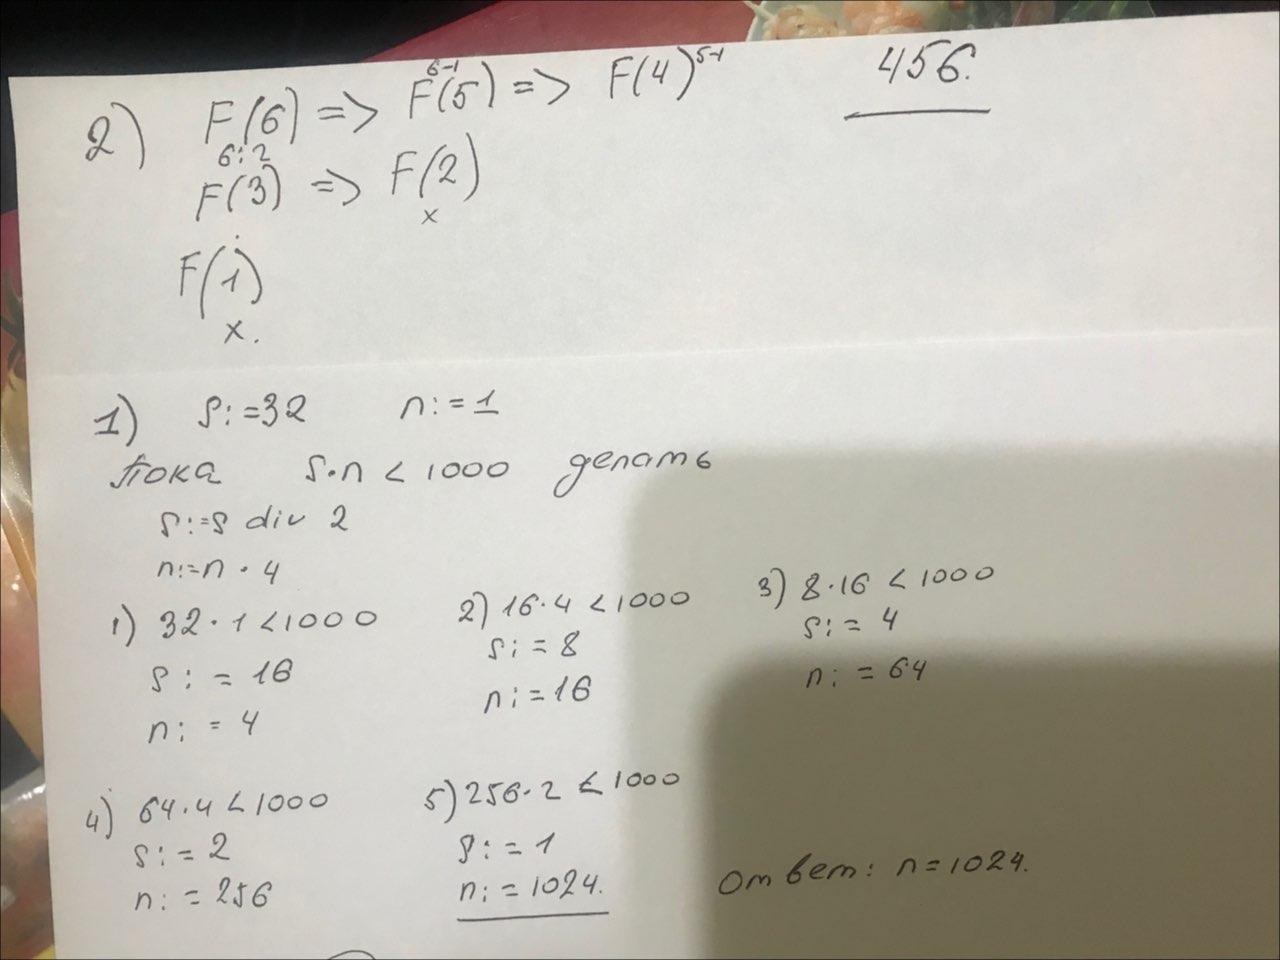 2) F(6) => F(5) => F(4) 456.
6-1 5-1
6:2
F(3) => F(2)
x
F(1)
x.
1) S:=32 n:=1
Пока S·n < 1000 делать
S:=S div 2
n:=n · 4
1) 32·1<1000 2) 16·4 <1000 3) 8·16 <1000
S:=16 S:=8 S:=4
n:=4 n:=16 n:=64
4) 64·4<1000 5) 256·2 <1000
S:=2 S:=1
n:=256 n:=1024. Ответ: n=1024.